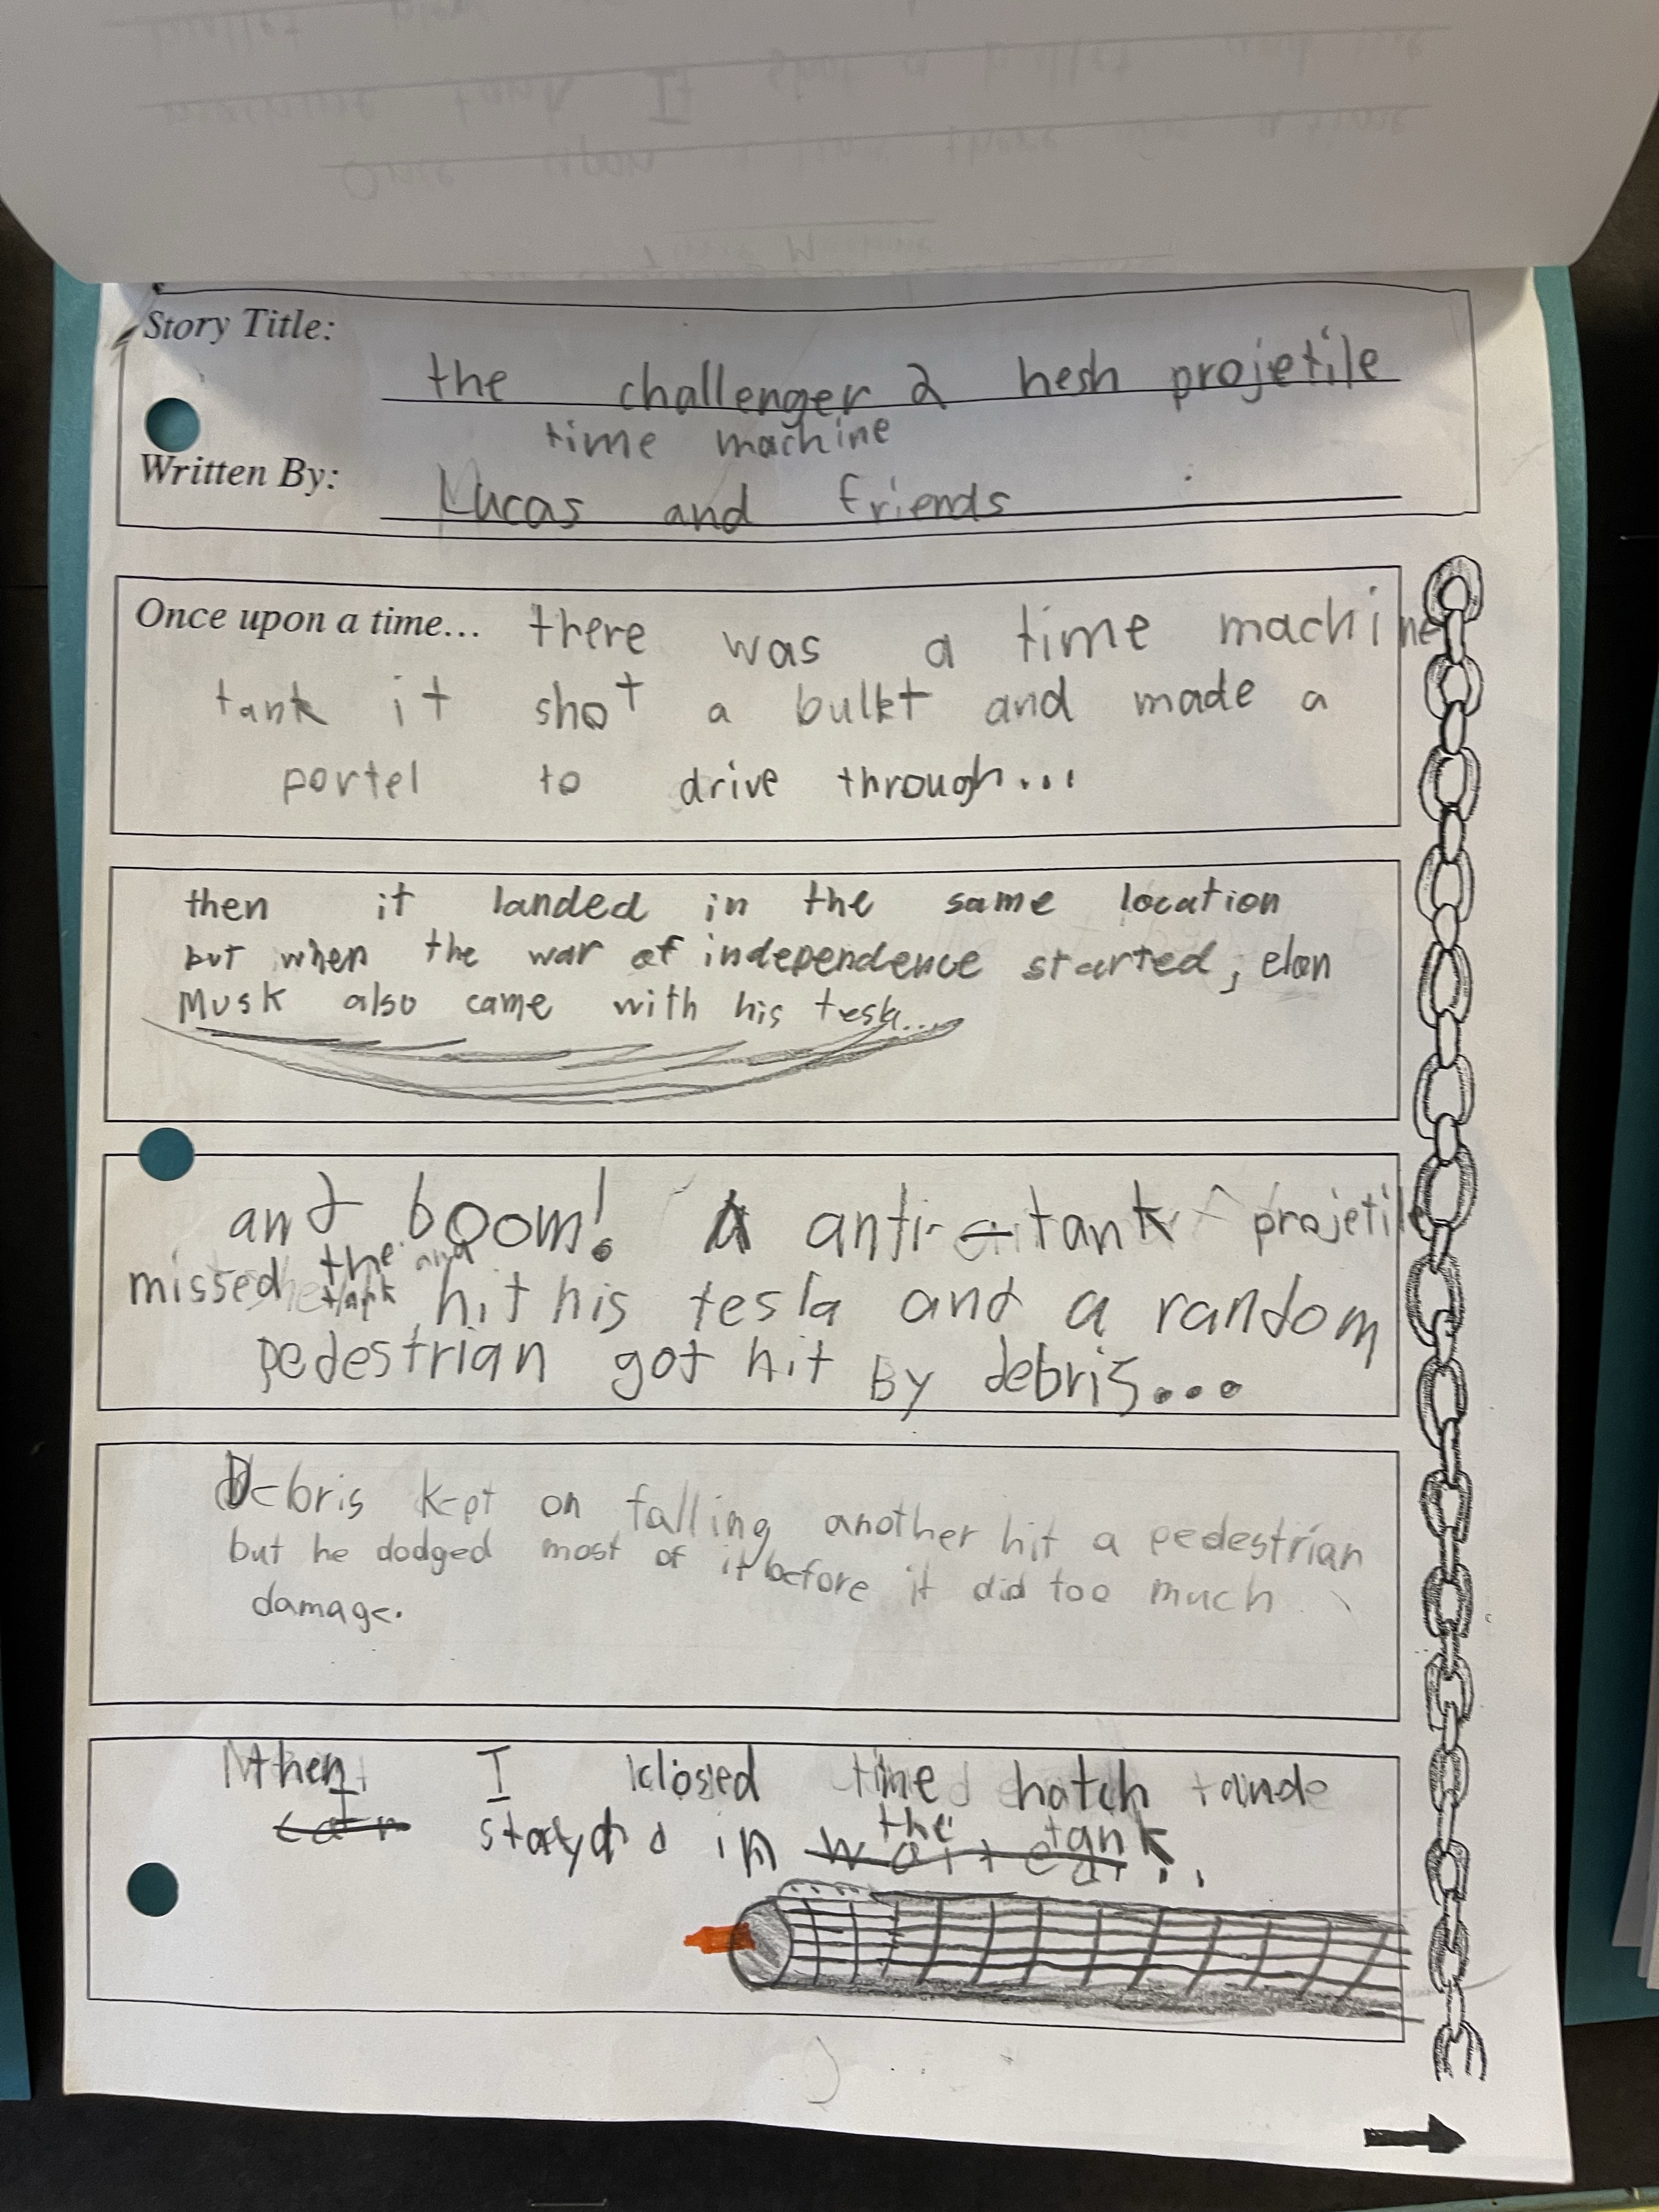 Story Title:
the challenger 2 hesh projetile
time machine
Written By: Lucas and friends
Once upon a time... there was a time machine
tank it shot a bullet and made a
portel to drive through...
then it landed in the same location
but when the war of independence started, elon
Musk also came with his tesla...
and boom! A anti-tank projetile
missed the tank and hit his tesla and a random
pedestrian got hit by debris...
Debris kept on falling another hit a pedestrian
but he dodged most of it before it did too much
damage.
then I closed the hatch and
I stayd in the tank..